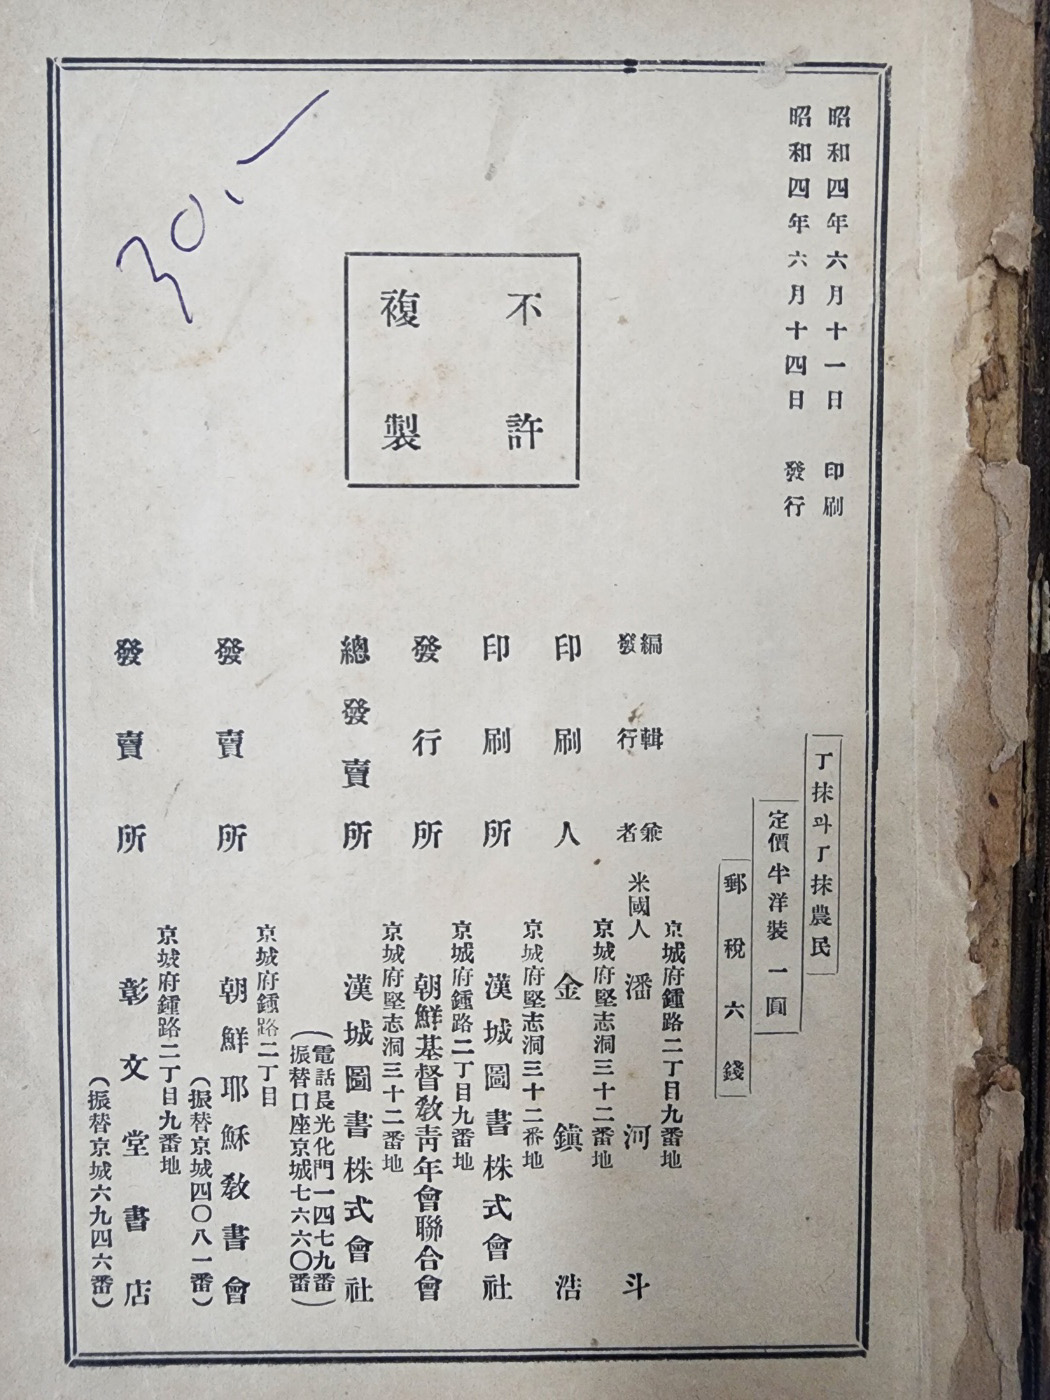 昭和四年六月十一日 印刷
昭和四年六月十四日 發行
丁抹과丁抹農民
定價半洋裝一圓
郵稅六錢
不許
複製
京城府鍾路二丁目九番地
編輯兼
發行者 米國人 潘河斗
京城府堅志洞三十二番地
印刷人 金鎭浩
京城府堅志洞三十二番地
印刷所 漢城圖書株式會社
京城府鍾路二丁目九番地
發行所 朝鮮基督敎靑年會聯合會
京城府堅志洞三十二番地
總發賣所 漢城圖書株式會社
(電話長光化門一四七九番)
(振替口座京城七六六〇番)
京城府鍾路二丁目
發賣所 朝鮮耶穌敎書會
(振替京城四〇八一番)
京城府鍾路二丁目九番地
發賣所 彰文堂書店
(振替京城六九四六番)
30.-